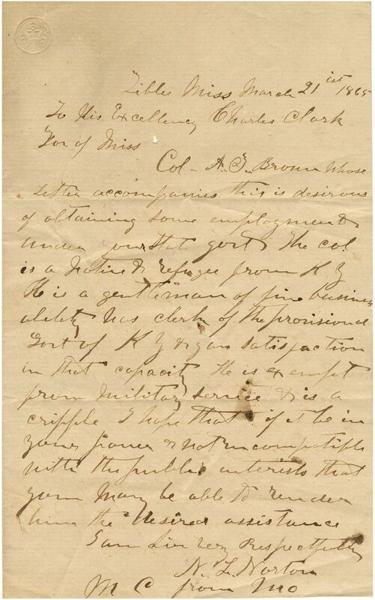 Miss March 21st 1865
To His Excellency Charles Clark
Gov of Miss
Col. A. J. Brown whose
letter accompanies this is desirous
of obtaining some employment
under your Stat govt The col
is a Native & refugee from K Y
He is a gentleman of fine business
ability was clerk of the provisional
Govt of K Y & gave satisfaction
in that capacity He is exempt
from military service & is a
cripple I hope that if it be in
your power & not incompatible
with the public interests that
you may be able to render
him the desired assistance
I am Sir very Respectfully
N. L. Norton
M C from Mo